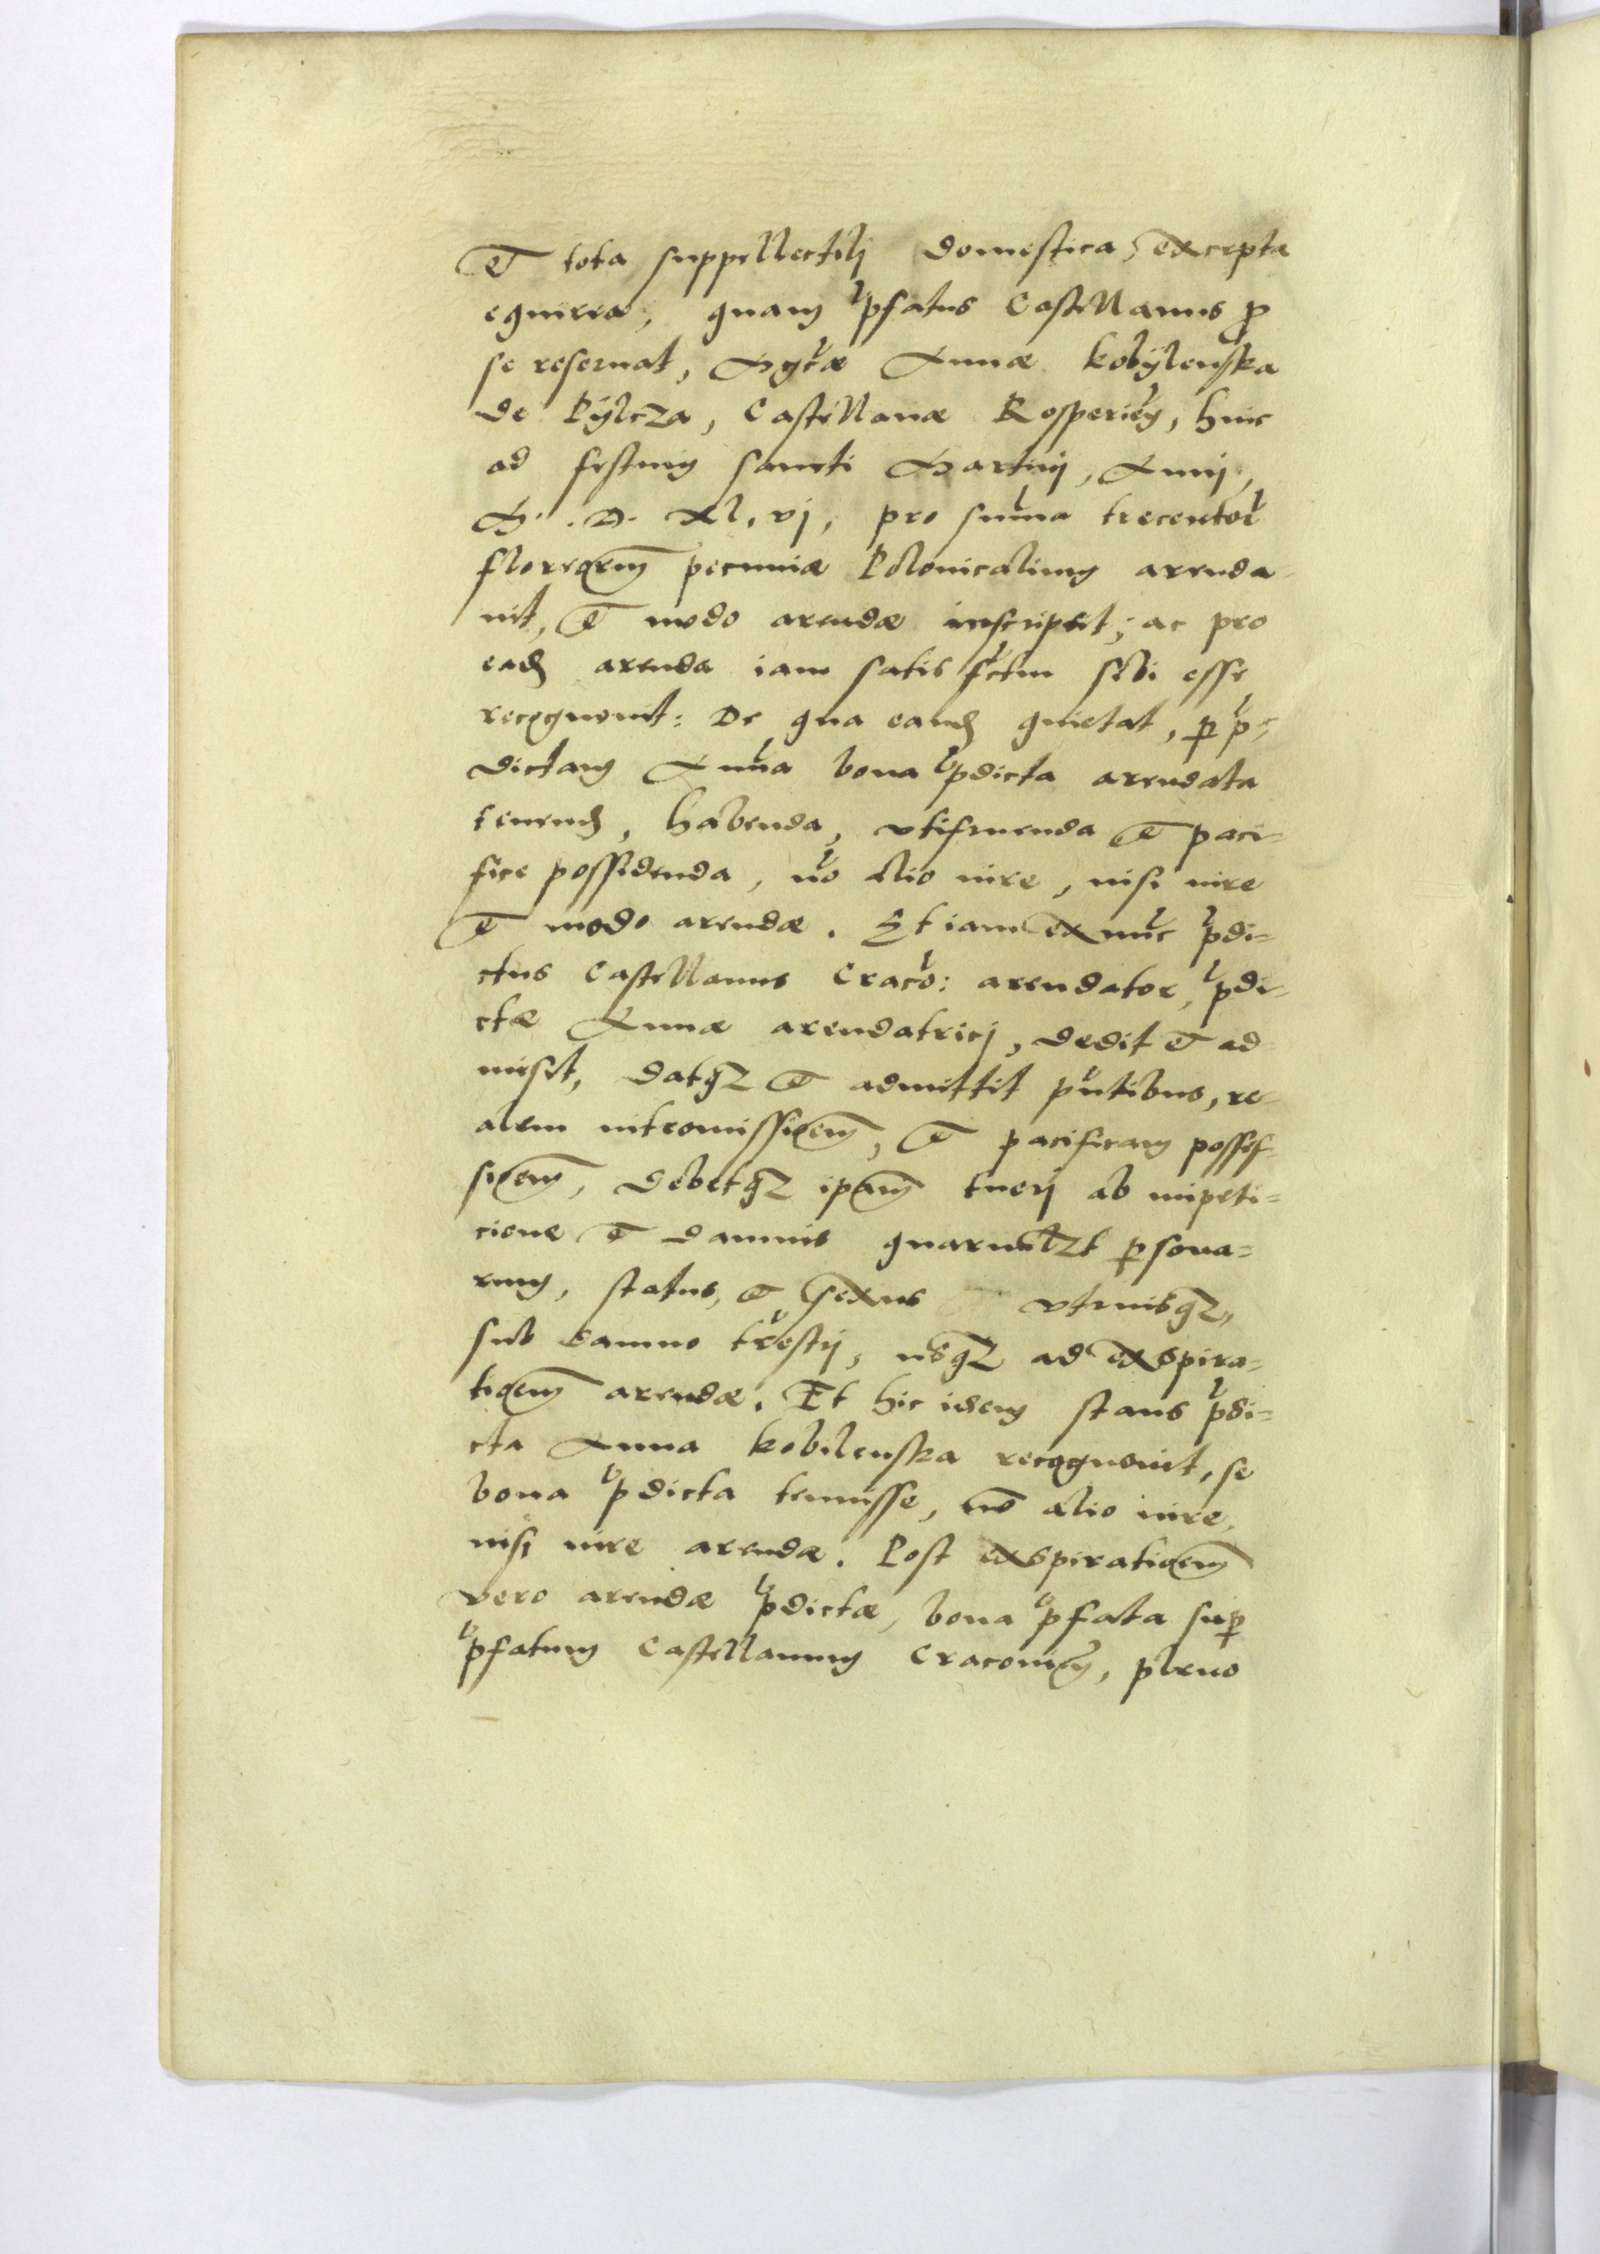 et tota suppellectilj domestica, excepta
equirea, quam p̃fatus Castellanus ꝓ
se reseruat, Mgc̃æ Annæ Kobÿlenska
de Pÿlcza, Castellanæ Rosperieñ, hinc
ad festum sancti Martinj, Annj,
M. D. xl. vj, pro sum̃a trecentor̃
florenorum pecuniæ Polonicalium arenda-
uit, et modo arendæ inscripsit; ac pro
ead̃ arenda iam satis fc̃tm sibi esse
recognouit: De qua eand̃ quietat, ꝑ p̃-
dictam Anña bona p̃dicta arendata
tenend̃, habenda, vtifruenda et paci-
fice possidenda, nõ alio iure, nisi iure
et modo arendæ. Et iam ex nũc p̃di-
ctus Castellanus Cracõ: arendator, p̃di-
ctæ Annæ arendatricj, dedit et ad-
misit, datqz et admittit p̃ntibus, re-
alem intromissioem̃, et pacificam posses-
sioem̃, debetqz ipam̃ tuerj ab impeti-
cione et damnis quarumlzt ꝑsona-
rum, status, et sexus vtriusqz,
sub damno tr̃estij, usqz ad exspira-
tioem̃ arendæ. Et hic idem stans p̃di-
cta Anna Kobilenska recognouit, se
bona p̃dicta tenuisse, nõ alio iure,
nisi iure arendæ. Post exspiratioem̃
vero arendæ p̃dictæ, bona p̃fata suꝑ
p̃fatum Castellanum Cracouieñ, pleno